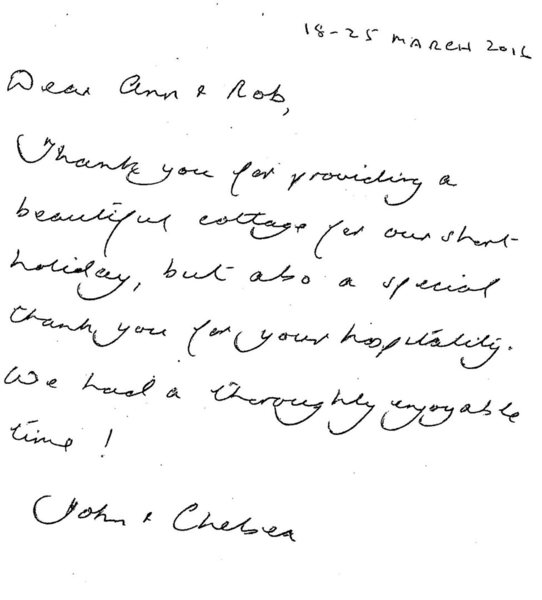 18-25 MARCH 2016
Dear Ann & Rob,
Thank you for providing a
beautiful cottage for our short
holiday, but also a special
thank you for your hospitality.
We had a thoroughly enjoyable
time!
John & Chelsea